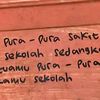 Pura - Pura sakit
sekolah sedangku
tuamu Pura - Pura
kamu sekolah